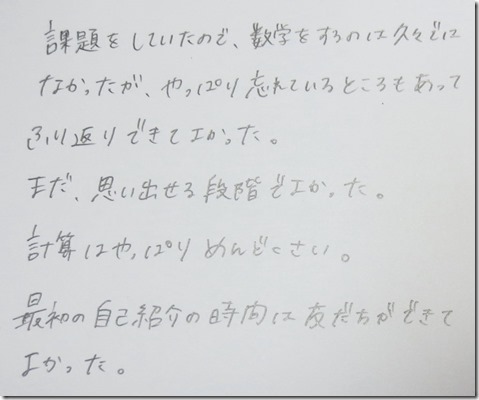 課題をしていたので、数学をするのは久々では
なかったが、やっぱり忘れているところもあって
ふり返りできてよかった。
まだ、思い出せる段階でよかった。
計算はやっぱりめんどくさい。
最初の自己紹介の時間は友だちができて
よかった。